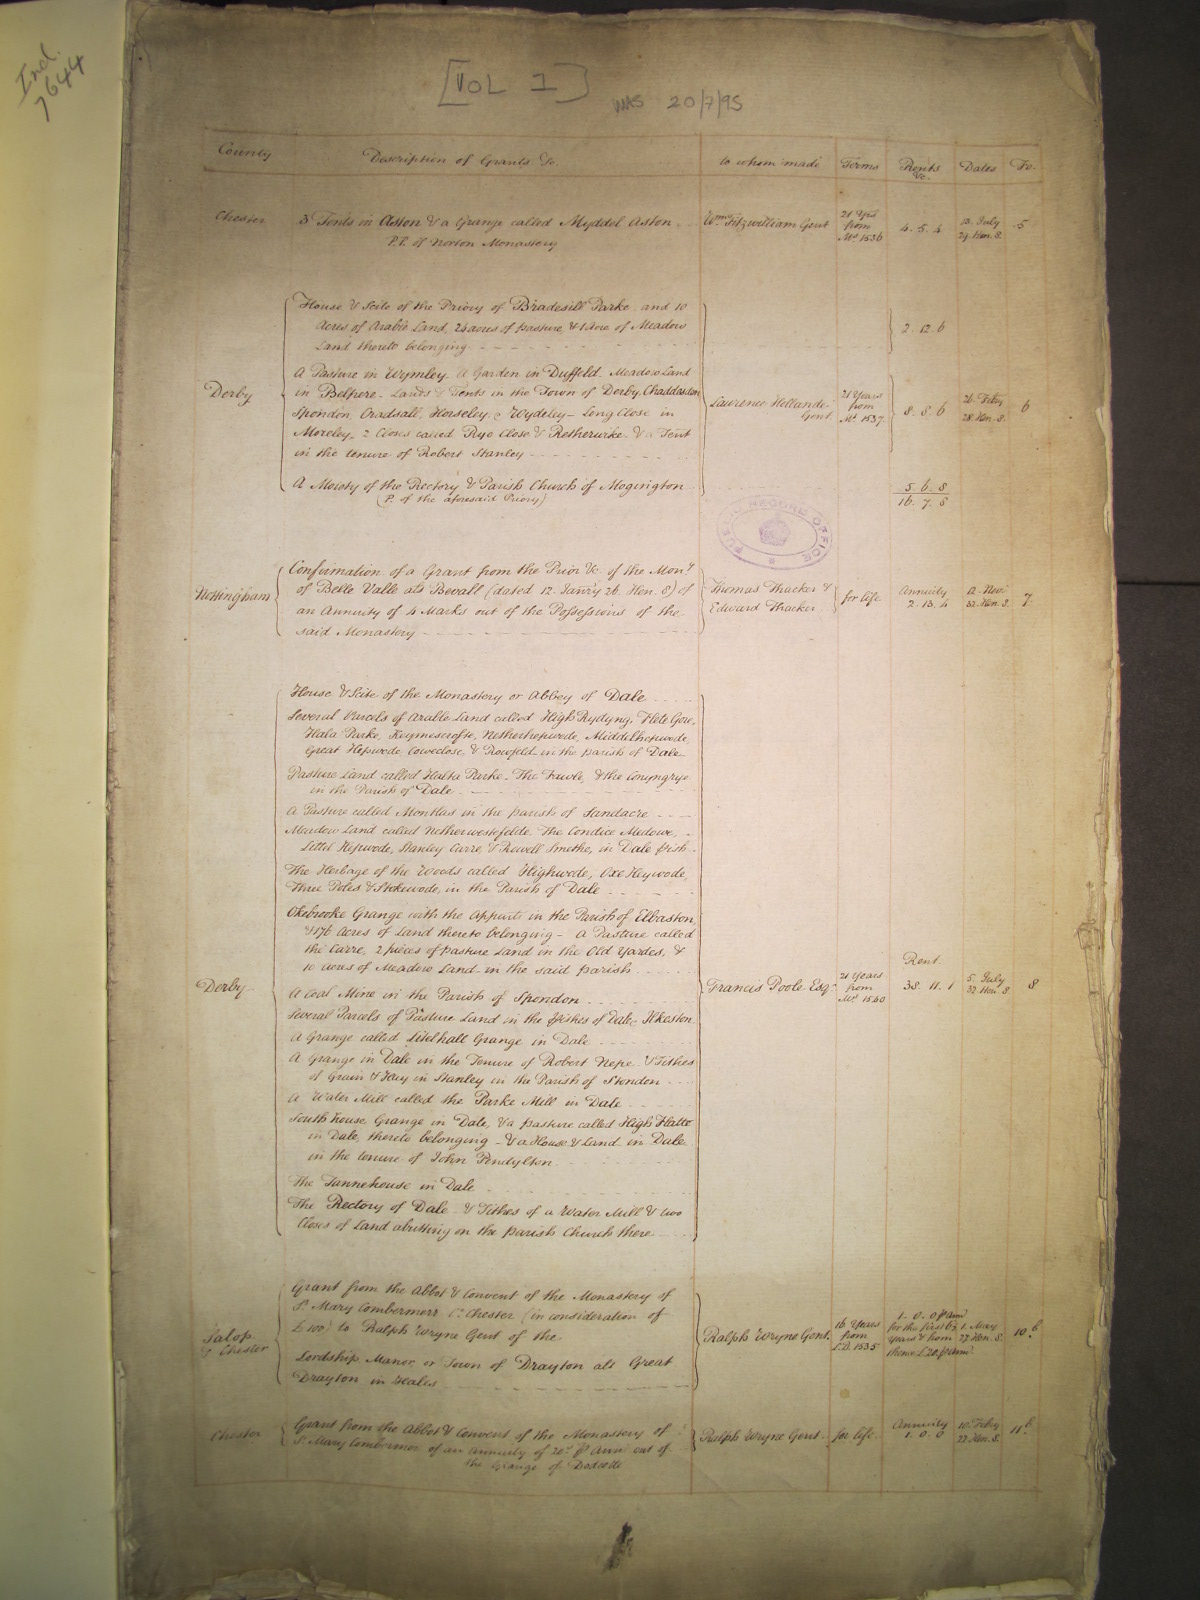 Ind.
7644
[VOL 1]
WAS 20/7/95
County
Description of Grants &c.
to whom made
Terms
Rents &c.
Dates
Fo.
Chester
3 Tents in Aston & a Grange called Myddel Aston
P.P. of Norton Monastery
Wm. Fitzwilliam Gent
21 Yrs
from
Ms. 1536
4. 5. 4
13. July
29. Hen. 8.
5
Derby
House & Scite of the Priory of Bradesill Parke and 10
Acres of Arable Land, 24 acres of pasture, & 1 Acre of Meadow
Land thereto belonging
2. 12. 6
A Pasture in Wymley, A Garden in Duffeld, Meadow Land
in Belpere - Lands & Tents in the Town of Derby, Chaddaston
Spondon, Cradsall, Horseley, & Wydeley - Long Close in
Moreley, 2 Closes called Rye Close & Netherwike & a Tent
in the tenure of Robert Stanley
Lawrence Hollande
Gent.
21 Years
from
Ms. 1537
8. 8. 6
26. Feby
28. Hen. 8.
6
A Moiety of the Rectory & Parish Church of Mogington
(P. of the aforesaid Priory)
5. 6. 8
16. 7. 8
PUBLIC RECORD OFFICE
Nottingham
Confirmation of a Grant from the Prior &c. of the Mony.
of Belle Valle als Bevall (dated 12. Janry 26. Hen. 8) of
an Annuity of 4 Marks out of the Possessions of the
said Monastery
Thomas Thacker &
Edward Thacker
for life
Annuity
2. 13. 4
12. Novr.
32. Hen. 8.
7
Derby
House & Scite of the Monastery or Abbey of Dale
Several Parcels of Arable Land called High Rydyng, Flete Gore,
Hala Parke, Kaymescrofte, Netherhepwode, Middilhepwode,
Great Hepwode, Coweclose, & Rowfeld in the parish of Dale
Pasture Land called Halta Parke - The Fawle, & the Conyngrye
in the Parish of Dale
A Pasture called Monthas in the parish of Sandacre
Meadow Land called Netherwestefelde, The Condice Medowe,
Littil Hepwode, Stanley Carre, & Rowell Smethe, in Dale psh
The Herbage of the Woods called Highwode, Oxe Heywode,
Three Poles & Stokewode, in the Parish of Dale
Okebrooke Grange with the Appurts in the Parish of Elbaston,
& 176 Acres of Land thereto belonging - A Pasture called
the Carre, 2 pieces of pasture Land in the Old Yardes, &
10 acres of Meadow Land in the said parish
A Coal Mine in the Parish of Spondon
Several Parcels of Pasture Land in the Pishes of Dale & Ilkeston
A Grange called Littelhall Grange in Dale
A Grange in Dale in the Tenure of Robert Nepe & Tithes
of Grain & Hay in Stanley in the Parish of Spondon
A Water Mill called the Parke Mill in Dale
Southhouse Grange in Dale, & a pasture called High Flatte
in Dale, thereto belonging - & a House & Land in Dale
in the tenure of John Pendylton
The Tannehouse in Dale
The Rectory of Dale & Tithes of a Water Mill & two
Closes of Land abutting on the parish Church there
Francis Poole Esqr.
21 Years
from
Ms. 1540
Rent
38. 11. 1
5. July
32. Hen. 8
8
Salop
& Chester
Grant from the Abbot & Convent of the Monastery of
St. Mary Combermere Co. Chester (in consideration of
£100) to Ralph Wryne Gent of the
Lordship Manor, or Town of Drayton als Great
Drayton in Hales
Ralph Wryne Gent.
16 Years
from
1535
1. 0. 0 P Ann
for the first 63
Years & from
thence £20. P Annm.
1. May
27. Hen. 8.
10.b
Chester
Grant from the Abbot & Convent of the Monastery of
St. Mary Combermer of an Annuity of 20s. P Ann out of
the Grange of Dodcotte
Ralph Wryne Gent.
for life
Annuity
1. 0. 0
10. Feby
27. Hen. 8.
11.b